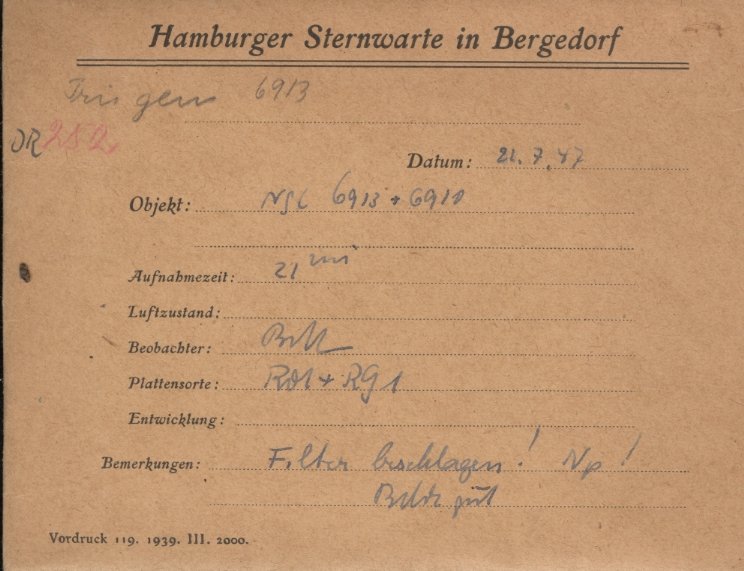 Hamburger Sternwarte in Bergedorf
6913
DR 282
Datum: 21. 7. 47
Objekt: NGC 6913 + 6910
Aufnahmezeit: 21 min
Luftzustand:
Beobachter:
Plattensorte: + RG 1
Entwicklung:
Bemerkungen: Filter beschlagen! Np!
gut
Vordruck 119. 1939. III. 2000.